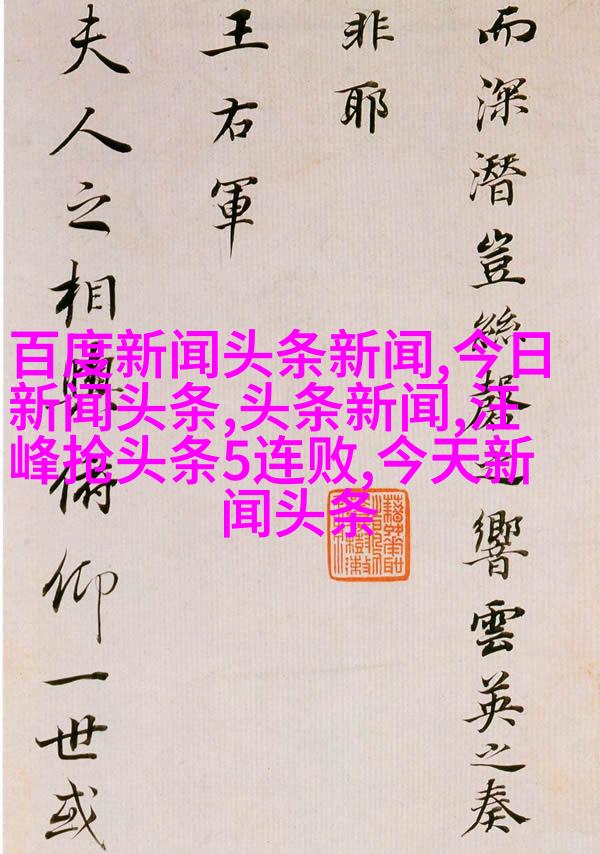 百度新闻头条新闻,今日
新闻头条,头条新闻,江
峰抢头条5连败,今天新
闻头条
而深潛豈絲磬之響雲英之奏
非耶
王右軍
夫人之相與俯仰一世或